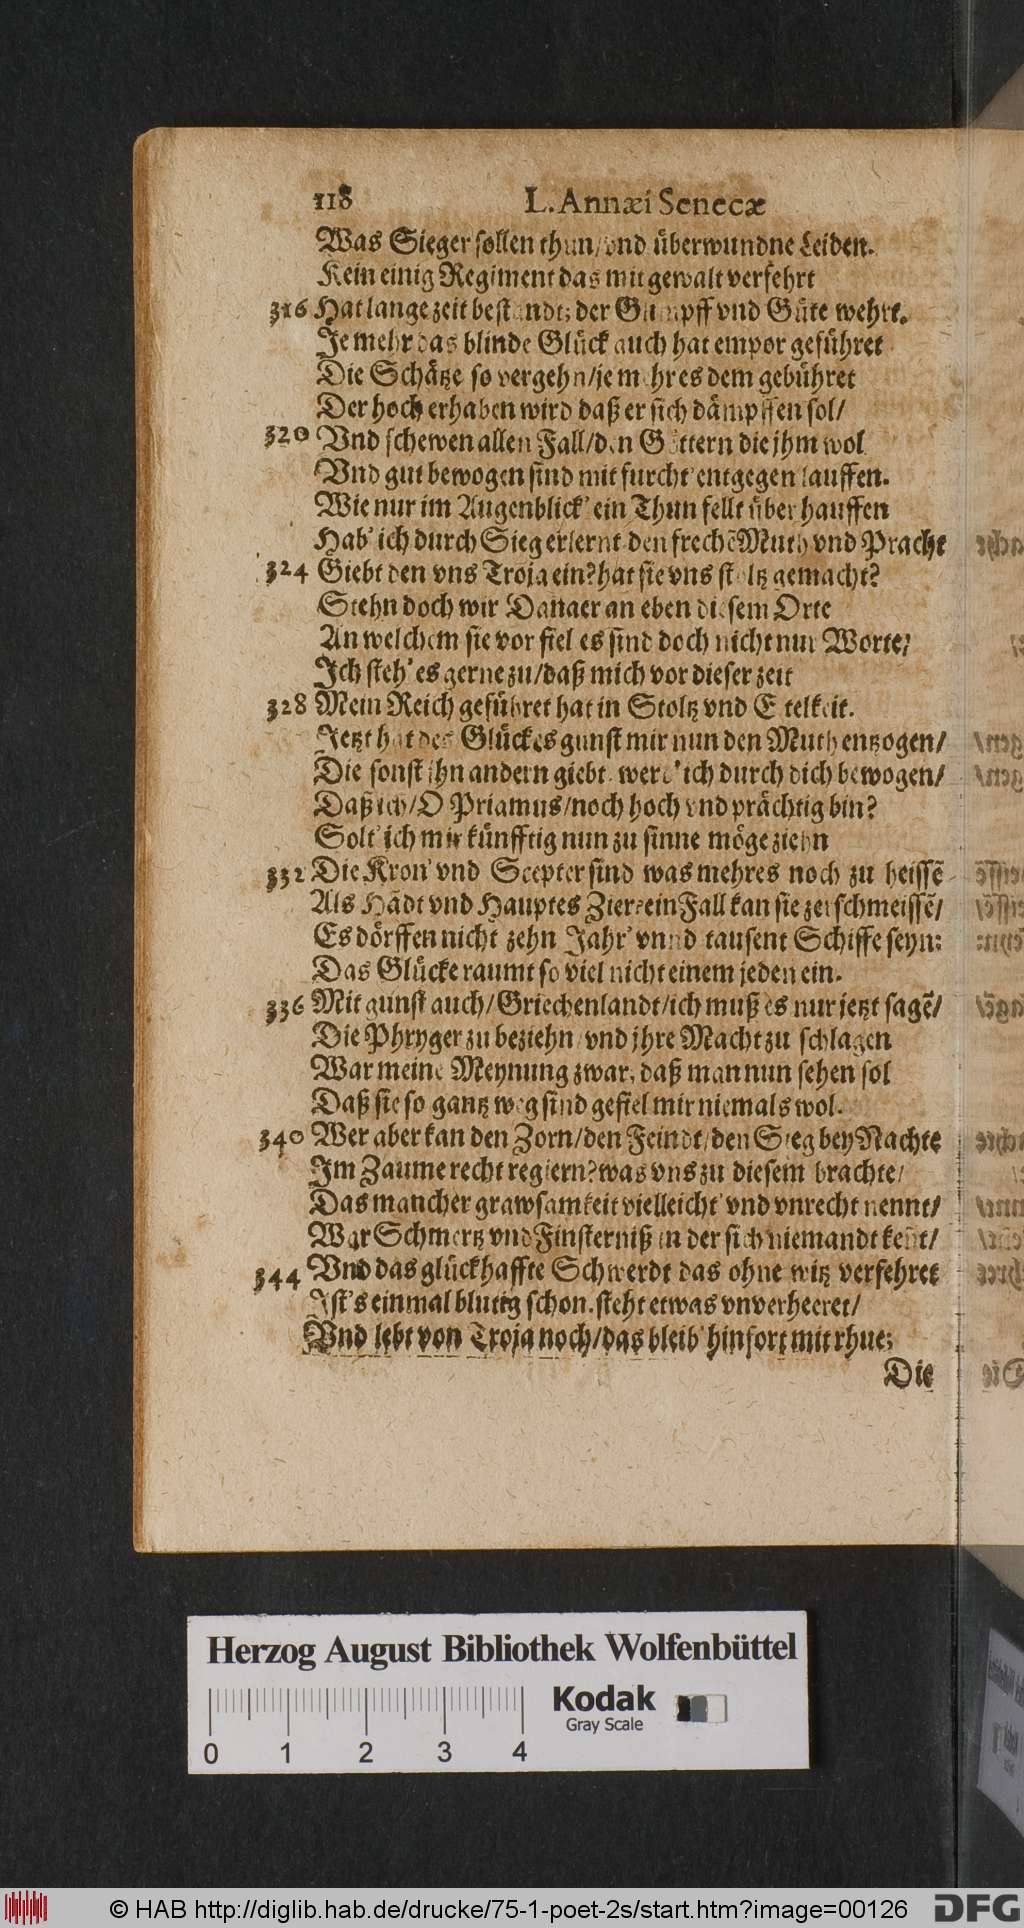 118 L. Annæi Senecæ
Was Sieger sollen thun/vnd überwundne Leiden.
Kein einig Regiment das mit gewalt verfehrt
316 Hat lange zeit bestandt; der Glimpff vnd Güte wehrt.
Je mehr das blinde Glück auch hat empor geführet
Die Schätze so vergehn/je mehr es dem gebühret
Der hoch erhaben wird daß er sich dämpffen sol/
320 Vnd schewen allen Fall/den Göttern die jhm wol
Vnd gut bewogen sind mit furcht' entgegen lauffen.
Wie nur im Augenblick' ein Thun fellt über hauffen
Hab' ich durch Sieg erlernt. den frechẽ Muth vnd Pracht
324 Giebt den vns Troja ein? hat sie vns stoltz gemacht?
Stehn doch wir Danaer an eben diesem Orte
An welchem sie vor fiel. es sind doch nicht nur Worte/
Ich steh' es gerne zu/daß mich vor dieser zeit
328 Mein Reich geführet hat in Stoltz vnd Eitelkeit.
Jetzt hat des Glückes gunst mir nun den Muth entzogen/
Die sonst ihn andern giebt. werd' ich durch dich bewogen/
Daß ich/O Priamus/noch hoch vnd prächtig bin?
Solt' ich mir künfftig nun zu sinne möge ziehn
332 Die Kron' vnd Scepter sind was mehres noch zu heissẽ
Als Hãdt vnd Hauptes Zier? ein Fall kan sie zerschmeissẽ/
Es dörffen nicht zehn Jahr' vnnd tausent Schiffe seyn:
Das Glücke raumt so viel nicht einem jeden ein.
336 Mit gunst auch/Griechenlandt/ich muß es nur jetzt sagẽ/
Die Phryger zu beziehn/vnd jhre Macht zu schlagen
War meine Meynung zwar; daß man nun sehen sol
Daß sie so gantz weg sind gefiel mir niemals wol.
340 Wer aber kan den Zorn/den Feindt/den Sieg bey Nachte
Im Zaume recht regiern? was vns zu diesem brachte/
Das mancher grawsamkeit vielleicht' vnd vnrecht nennt/
War Schmertz vnd Finsterniß in der sich niemandt keñt/
344 Vnd das glückhaffte Schwerdt das ohne witz verfehret
Ist's einmal blutig schon. steht etwas vnverheeret/
Vnd lebt von Troja noch/das bleib' hinfort mit rhue;
Die
Herzog August Bibliothek Wolfenbüttel
Kodak
Gray Scale
0 1 2 3 4
© HAB http://diglib.hab.de/drucke/75-1-poet-2s/start.htm?image=00126
DFG